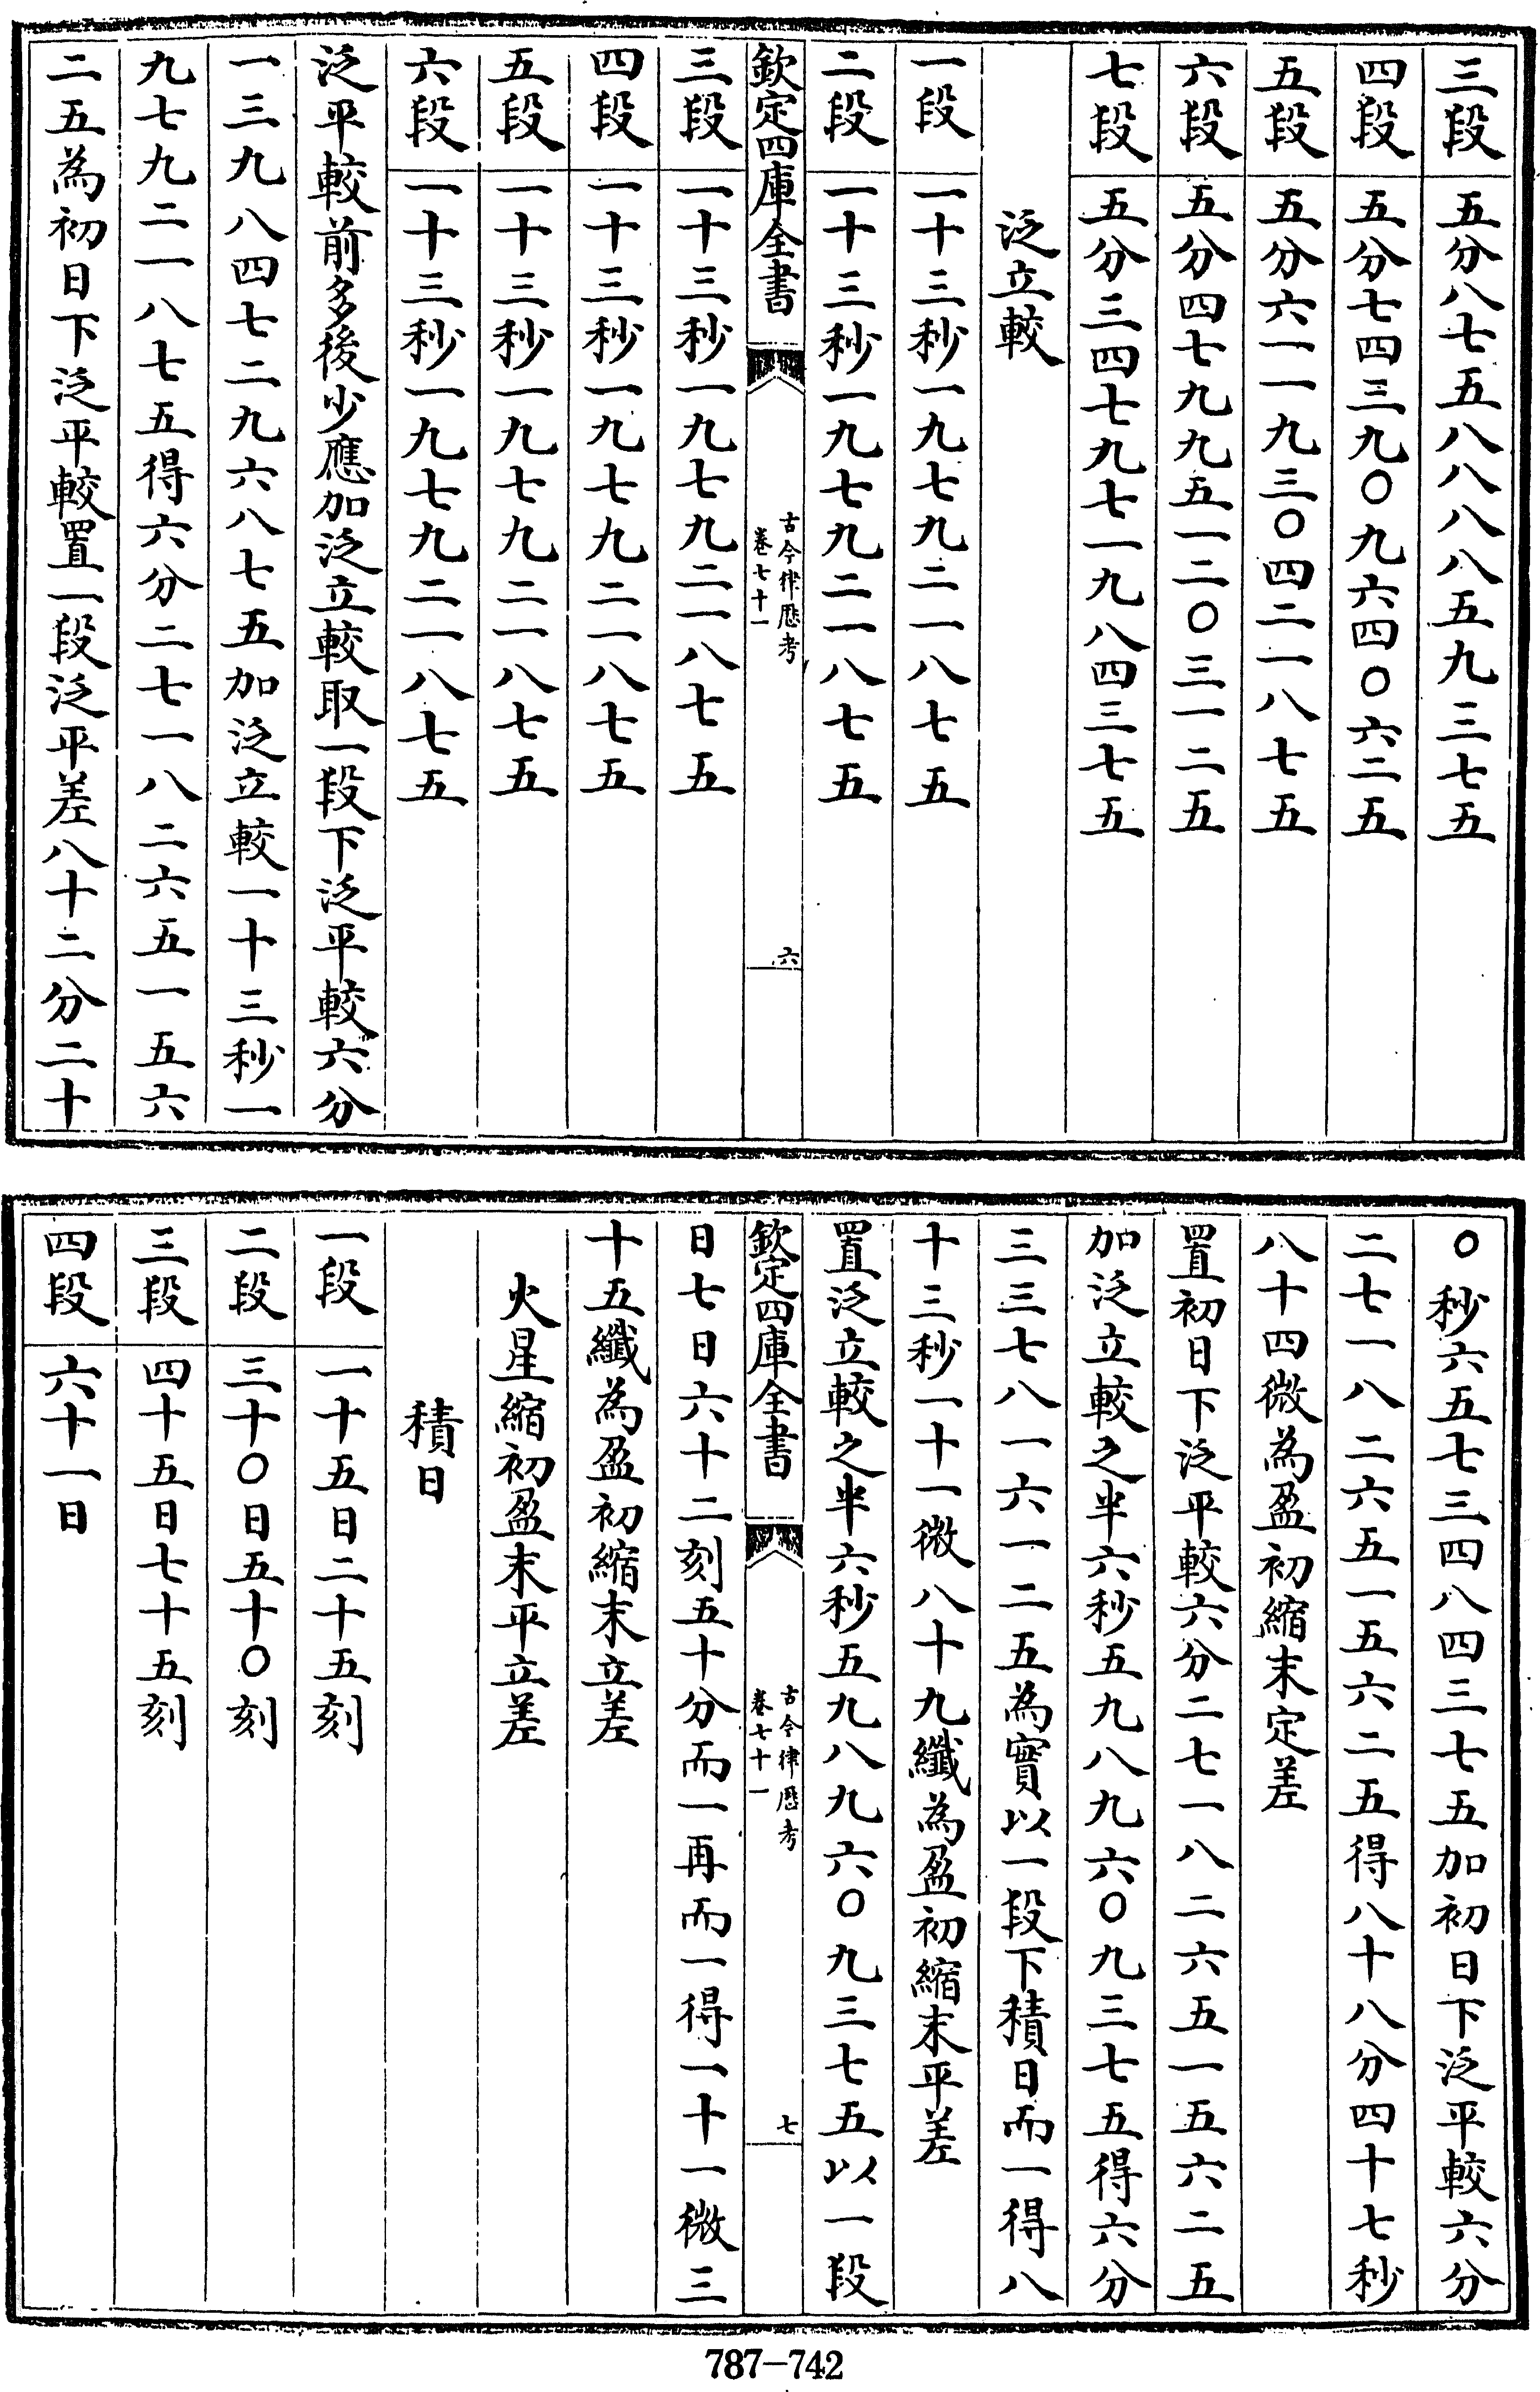 三段 五分八七五八八八八五九三七五
四段 五分七四三九〇九六四〇六二五
五段 五分六一一九三〇四二一八七五
六段 五分四七九九五一二〇三一二五
七段 五分三四七九七一九八四三七五
泛立較
一段 一十三秒一九七九二一八七五
二段 一十三秒一九七九二一八七五
欽定四庫全書 古今律歷考 卷七十一 六
三段 一十三秒一九七九二一八七五
四段 一十三秒一九七九二一八七五
五段 一十三秒一九七九二一八七五
六段 一十三秒一九七九二一八七五
泛平較前多後少應加泛立較取一段下泛平較六分
一三九八四七二九六八七五加泛立較一十三秒一
九七九二一八七五得六分二七一八二六五一五六
二五為初日下泛平較置一段泛平差八十二分二十
〇秒六五七三四八四三七五加初日下泛平較六分
二七一八二六五一五六二五得八十八分四十七秒
八十四微為盈初縮末定差
置初日下泛平較六分二七一八二六五一五六二五
加泛立較之半六秒五九八九六〇九三七五得六分
三三七八一六一二五為實以一段下積日而一得八
十三秒一十一微八十九纖為盈初縮末平差
置泛立較之半六秒五九八九六〇九三七五以一段
欽定四庫全書 古今律歷考 卷七十一 七
日七日六十二刻五十分而一再而一得一十一微三
十五纖為盈初縮末立差
火星縮初盈末平立差
積日
一段 一十五日二十五刻
二段 三十〇日五十〇刻
三段 四十五日七十五刻
四段 六十一日
787—742